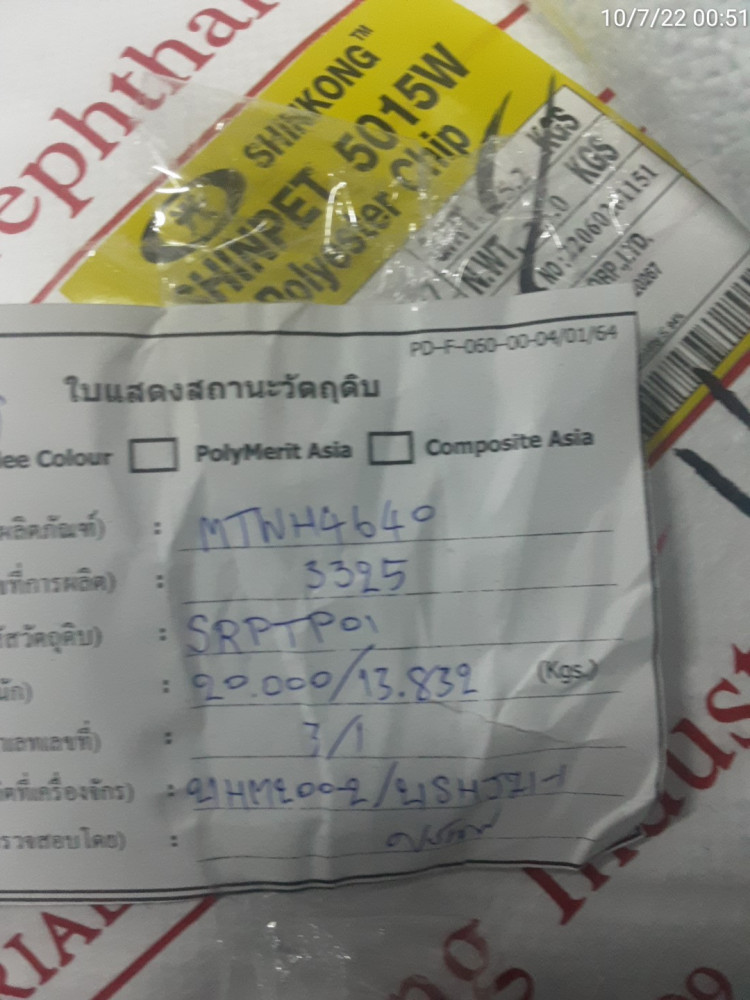 10/7/22 00:51
ephthal
SHINKONG™
SHINPET 5015W
Polyester Chip
KGS
N.WT. KGS
PD-F-060-00-04/01/64
ใบแสดงสถานะวัตถุดิบ
lee Colour PolyMerit Asia Composite Asia
ผลิตภัณฑ์) : MTWH4640
ที่การผลิต) : 3325
สวัตถุดิบ) : SRPTP01
นัก) : 20.000/13.832 (Kgs.)
าเลทเลขที่) : 3/1
ที่เครื่องจักร) :
รวจสอบโดย) :
RIAL
ng Indust